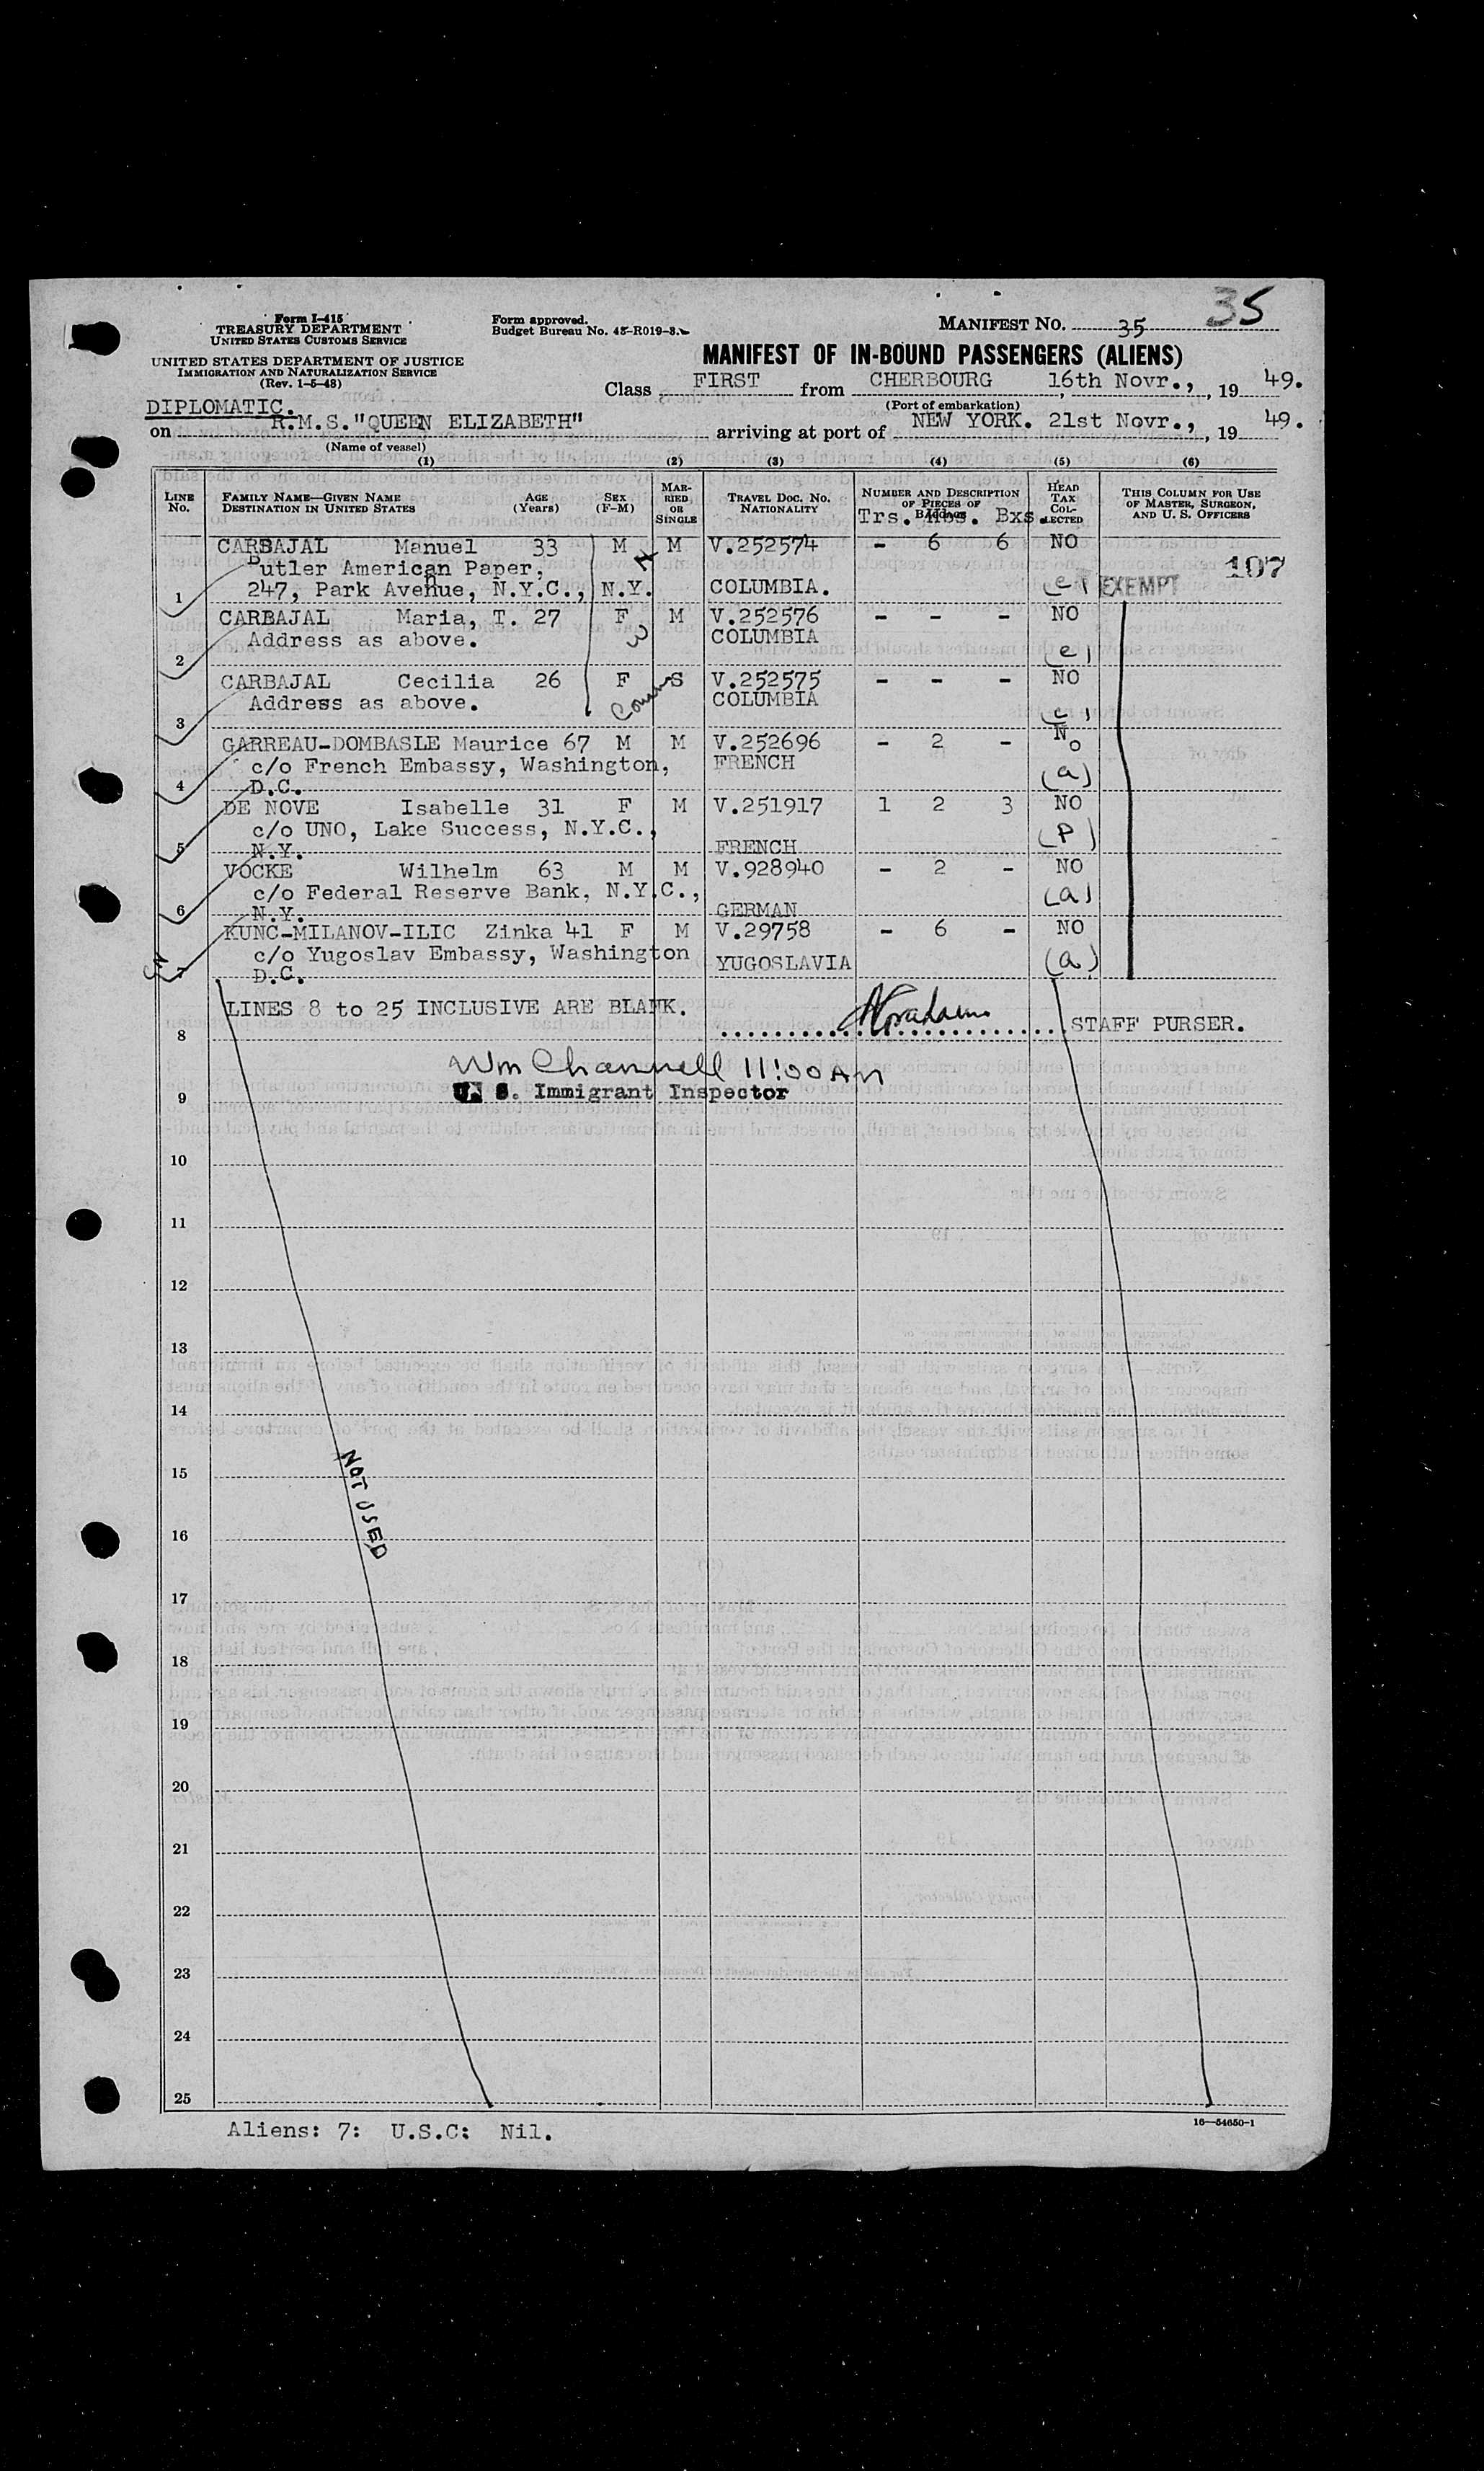 35
Form I-415
TREASURY DEPARTMENT
UNITED STATES CUSTOMS SERVICE
Form approved.
Budget Bureau No. 43-R019-3.
MANIFEST NO. 35
UNITED STATES DEPARTMENT OF JUSTICE
IMMIGRATION AND NATURALIZATION SERVICE
(Rev. 1-5-48)
MANIFEST OF IN-BOUND PASSENGERS (ALIENS)
Class FIRST from CHERBOURG, 16th Novr., 19 49.
(Port of embarkation)
DIPLOMATIC.
on R.M.S."QUEEN ELIZABETH" arriving at port of NEW YORK. 21st Novr., 19 49.
(Name of vessel)
(1) (2) (3) (4) (5) (6)
LINE No. FAMILY NAME—GIVEN NAME DESTINATION IN UNITED STATES AGE (Years) SEX (F-M) MARRIED OR SINGLE TRAVEL DOC. NO. NATIONALITY NUMBER AND DESCRIPTION OF PIECES OF BAGGAGE HEAD TAX COLLECTED THIS COLUMN FOR USE OF MASTER, SURGEON, AND U. S. OFFICERS
Trs. Hbs. Bxs.
CARBAJAL Manuel 33 M M V.252574 - 6 6 NO
Butler American Paper,
1 247, Park Avenue, N.Y.C., N.Y. COLUMBIA. (e) EXEMPT 107
CARBAJAL Maria, T. 27 F M V.252576 - - - NO
Address as above. COLUMBIA
2 (e)
CARBAJAL Cecilia 26 F S V.252575 - - - NO
Address as above. COLUMBIA
3 (e)
GARREAU-DOMBASLE Maurice 67 M M V.252696 - 2 - No
c/o French Embassy, Washington, FRENCH
4 D.C. (a)
DE NOVE Isabelle 31 F M V.251917 1 2 3 NO
c/o UNO, Lake Success, N.Y.C.,
5 N.Y. FRENCH (P)
VOCKE Wilhelm 63 M M V.928940 - 2 - NO
c/o Federal Reserve Bank, N.Y.C.,
6 N.Y. GERMAN (a)
KUNC-MILANOV-ILIC Zinka 41 F M V.29758 - 6 - NO
c/o Yugoslav Embassy, Washington YUGOSLAVIA
7 D.C. (a)
LINES 8 to 25 INCLUSIVE ARE BLANK.
8 STAFF PURSER.
Wm Channell 11:00 AM
9 U. S. Immigrant Inspector
10
11
12
13
14
15
NOT USED
16
17
18
19
20
21
22
23
24
25
Aliens: 7: U.S.C: Nil.
16—54650-1